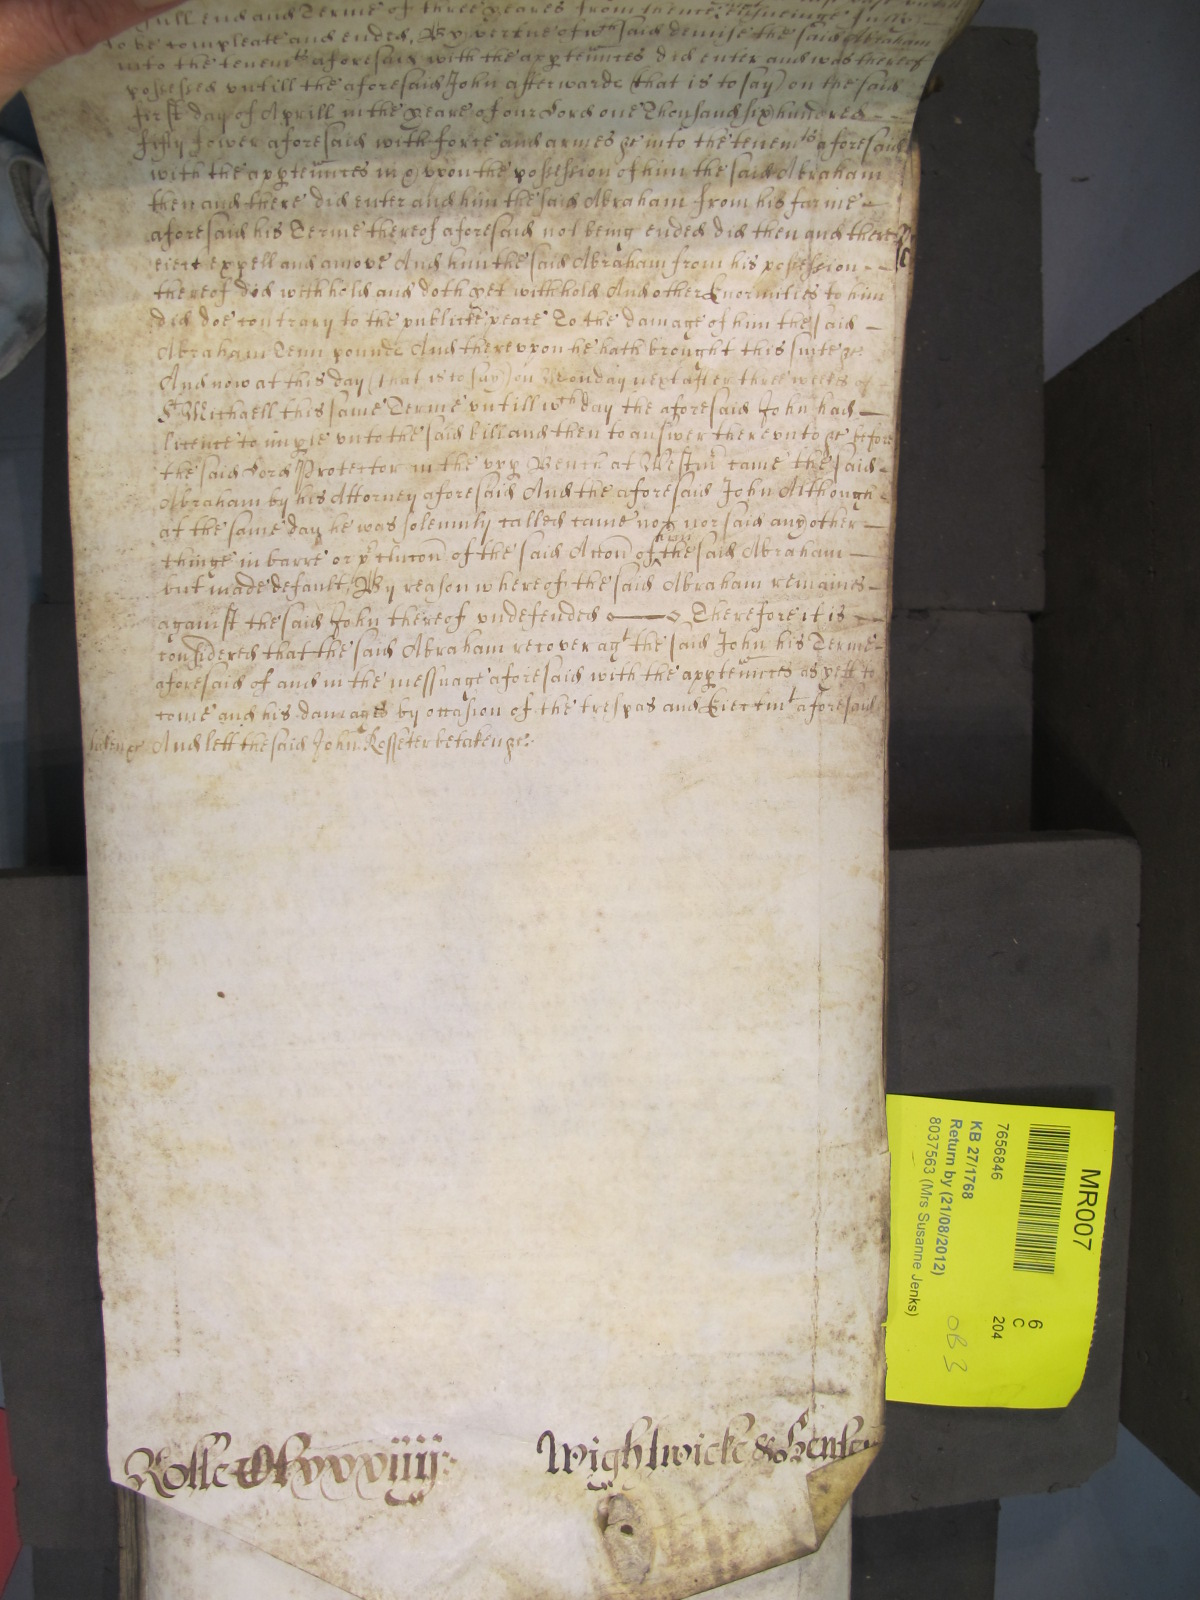 full end and Terme of three yeares from thence
to be compleate and ended, By vertue of wch said demise the said Abraham
into the tenemts aforesaid with the appurtenncs did enter and was thereof
possessed untill the aforesaid John afterwards (that is to say) on the said
first day of Aprill in the yeare of our Lord one Thousand six hundred
fifty fower aforesaid with force and armes &c into the tenemts aforesaid
with the appurtenncs in & upon the possession of him the said Abraham
then and there did enter and him the said Abraham from his farme —
aforesaid his Terme thereof aforesaid not being ended did then and there
eiect expell and amove And him the said Abraham from his possession - -
thereof did withhold and doth yet withhold And other Enormities to him
did doe contrary to the publicke peace To the damage of him the said —
Abraham Tenn pounds And thereupon he hath brought this suite &c
And now at this day (that is to say) on Monday next after three weeks of
St Michaell this same Terme untill wch day the aforesaid John had —
licence to imple unto the said bill and then to answer thereunto &c before
the said Lord Protector in the upp Bench at Westm came the said -
Abraham by his Attorney aforesaid And the aforesaid John Although
at the same day he was solemnly called came not nor said any other —
thinge in barre or pclucon of the said Accon of him the said Abraham —
but made default, By reason whereof the said Abraham remaines -
against the said John thereof undefended —— Therefore it is
considered that the said Abraham recover agt the said John his Terme -
aforesaid of and in the messuage aforesaid with the appurtenncs as yett to
come and his damages by occasion of the trespas and Eiectmt aforesaid
And lett the said John Rosseter be taken &c
Wightwicke & Henley
MR007
7656846
KB 27/1768
Return by (21/08/2012)
8037563 (Mrs Susanne Jenks)
6
C
204
OB 3